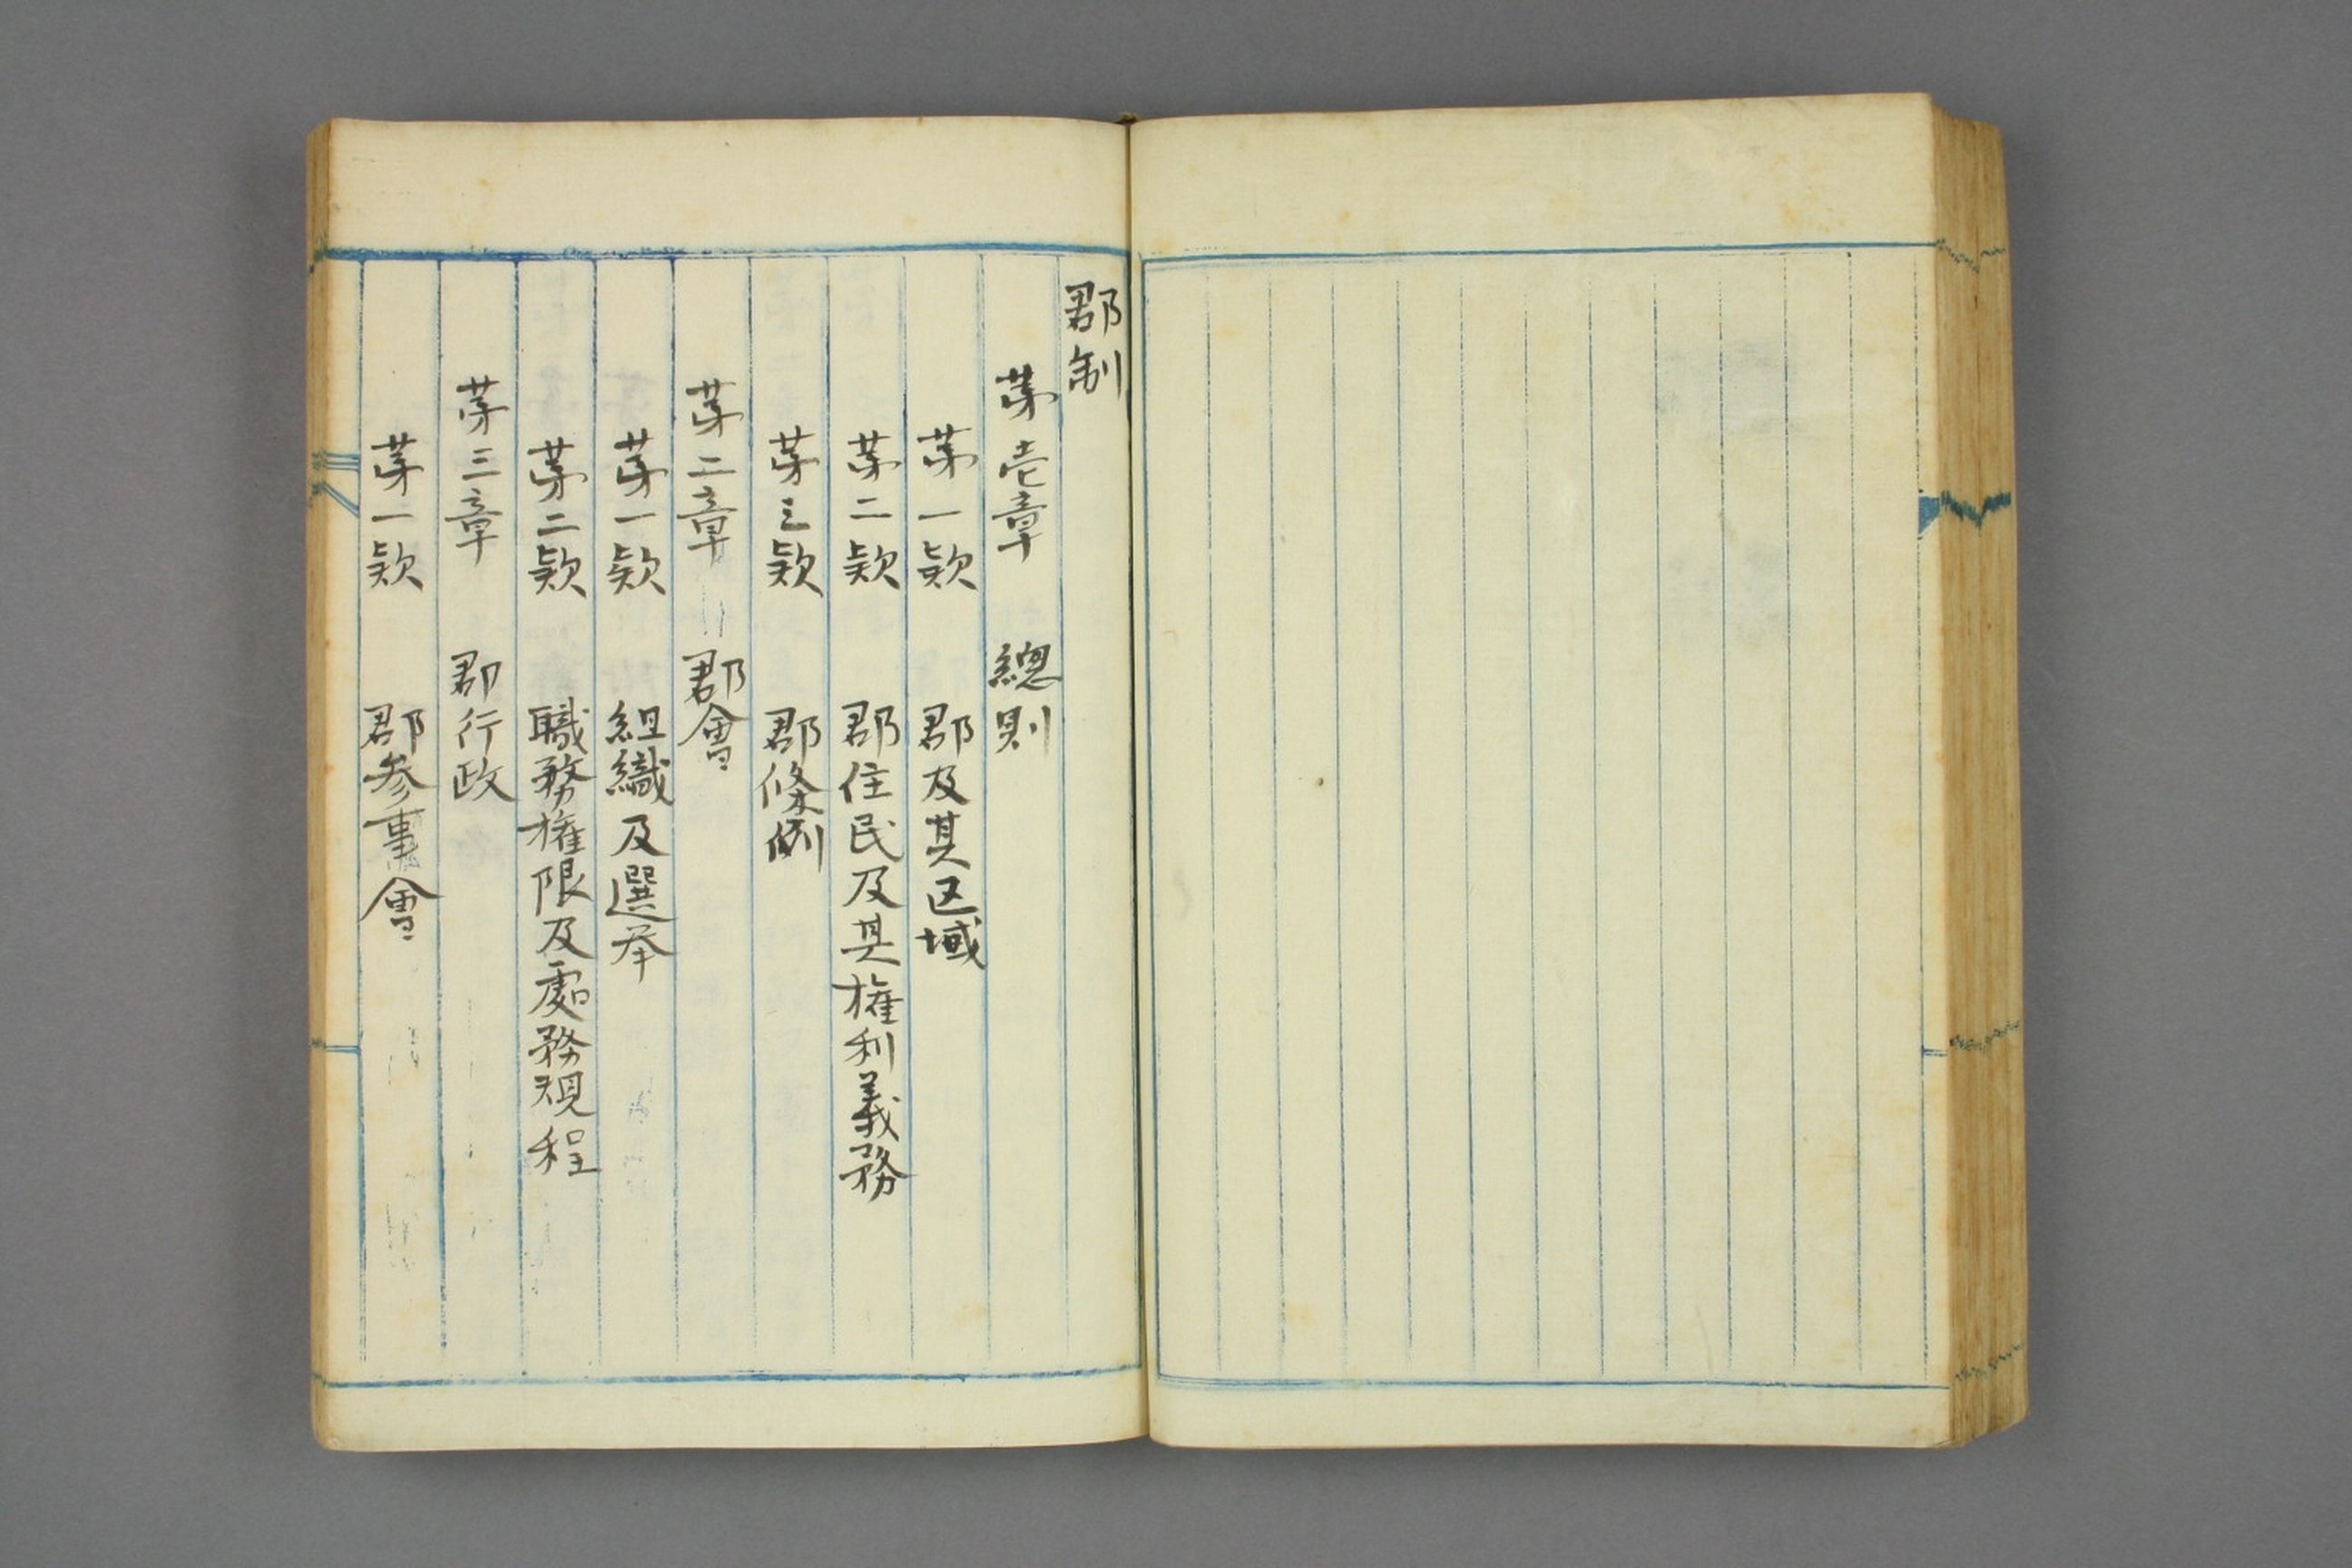 郡制
第壱章 總則
第一款 郡及其区域
第二款 郡住民及其權利義務
第三款 郡條例
第二章 郡會
第一款 組織及選挙
第二款 職務權限及處務規程
第三章 郡行政
第一款 郡参事會